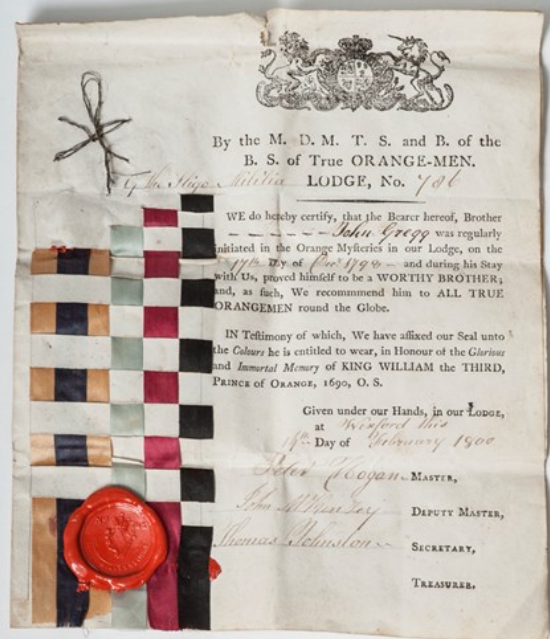 By the M. D. M. T. S. and B. of the
B. S. of True ORANGE-MEN.
Of the Sligo Militia LODGE, No. 786
WE do hereby certify, that the Bearer hereof, Brother
John Gregg was regularly
initiated in the Orange Mysteries in our Lodge, on the
17th Day of 1798 and during his Stay
with Us, proved himself to be a WORTHY BROTHER;
and, as such, We recommend him to ALL TRUE
ORANGEMEN round the Globe.
IN Testimony of which, We have affixed our Seal unto
the Colours he is entitled to wear, in Honour of the Glorious
and Immortal Memory of KING WILLIAM the THIRD,
PRINCE of ORANGE, 1690, O. S.
Given under our Hands, in our LODGE,
at Wexford this
Day of February 1800
Peter Hogan MASTER,
John McKinley DEPUTY MASTER,
Thomas Johnston SECRETARY,
TREASURER.